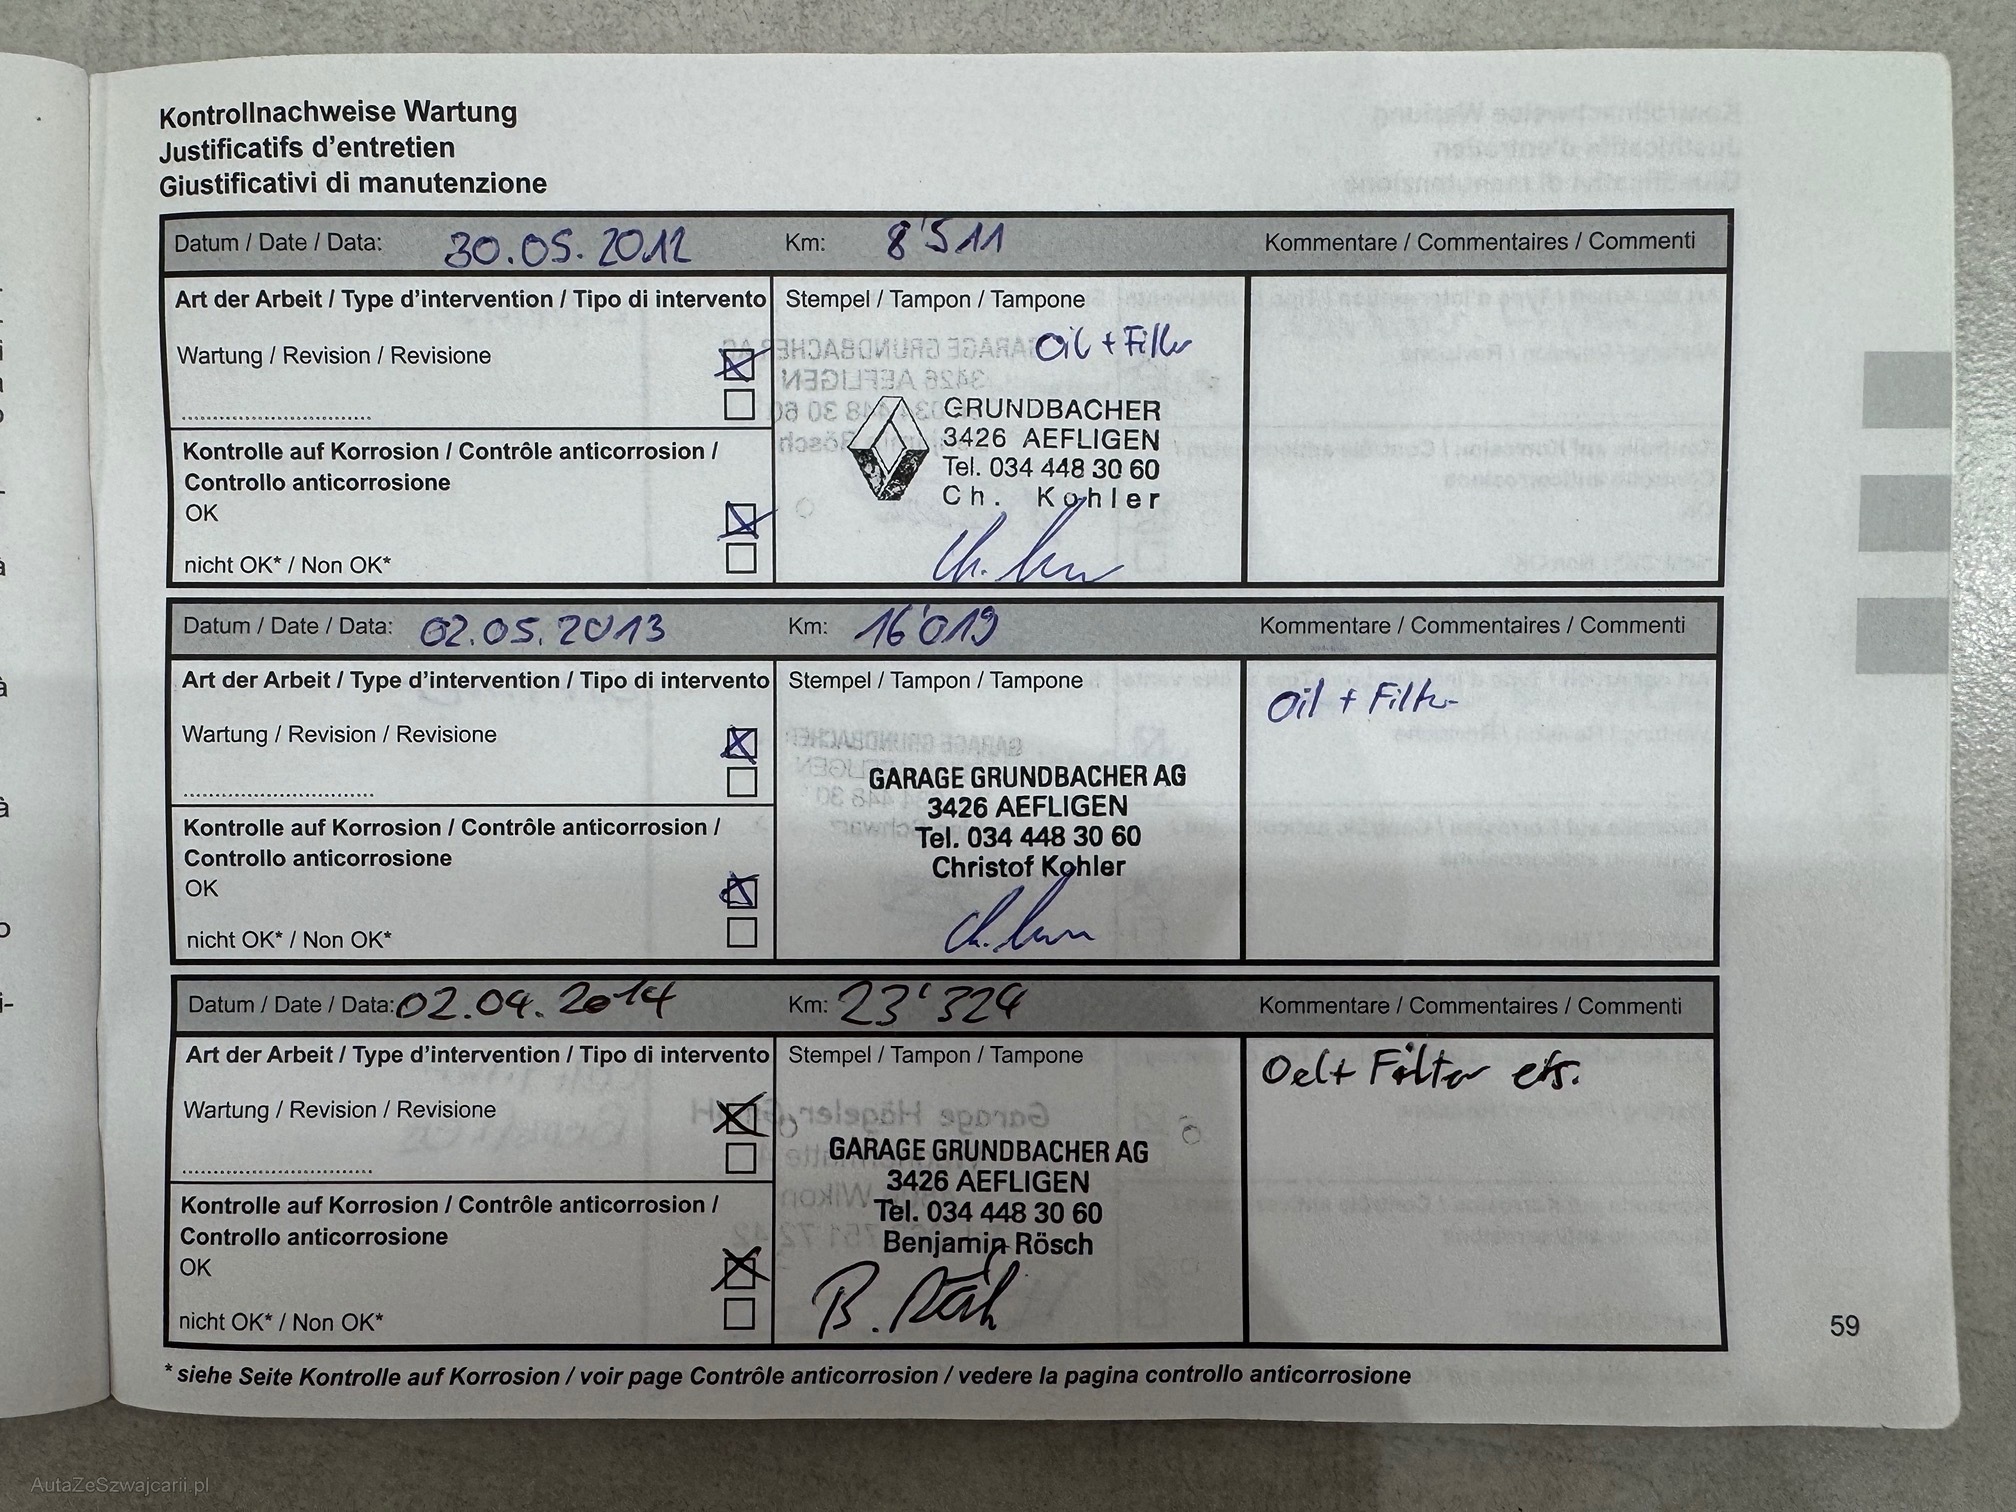 Kontrollnachweise Wartung
Justificatifs d'entretien
Giustificativi di manutenzione
Datum / Date / Data: 30.05.2012 Km: 8'511 Kommentare / Commentaires / Commenti
Art der Arbeit / Type d'intervention / Tipo di intervento Stempel / Tampon / Tampone
Oil + Filter
Wartung / Revision / Revisione
GRUNDBACHER
3426 AEFLIGEN
Tel. 034 448 30 60
Ch. Kohler
Kontrolle auf Korrosion / Contrôle anticorrosion /
Controllo anticorrosione
OK
nicht OK* / Non OK*
Datum / Date / Data: 02.05.2013 Km: 16'019 Kommentare / Commentaires / Commenti
Art der Arbeit / Type d'intervention / Tipo di intervento Stempel / Tampon / Tampone
Oil + Filter
Wartung / Revision / Revisione
GARAGE GRUNDBACHER AG
3426 AEFLIGEN
Tel. 034 448 30 60
Christof Kohler
Kontrolle auf Korrosion / Contrôle anticorrosion /
Controllo anticorrosione
OK
nicht OK* / Non OK*
Datum / Date / Data: 02.04.2014 Km: 23'324 Kommentare / Commentaires / Commenti
Art der Arbeit / Type d'intervention / Tipo di intervento Stempel / Tampon / Tampone
Oel + Filter
Wartung / Revision / Revisione
GARAGE GRUNDBACHER AG
3426 AEFLIGEN
Tel. 034 448 30 60
Benjamin Rösch
B. Rösch
Kontrolle auf Korrosion / Contrôle anticorrosion /
Controllo anticorrosione
OK
nicht OK* / Non OK*
* siehe Seite Kontrolle auf Korrosion / voir page Contrôle anticorrosion / vedere la pagina controllo anticorrosione
59
AutaZeSzwajcarii.pl